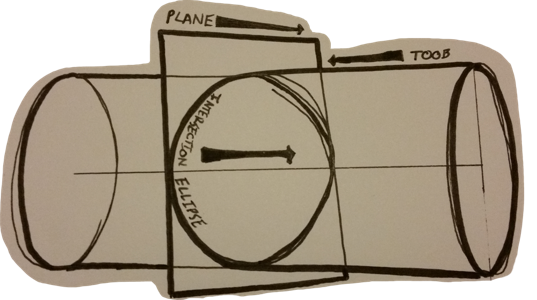 PLANE
TOOB
INTERSECTION ELLIPSE